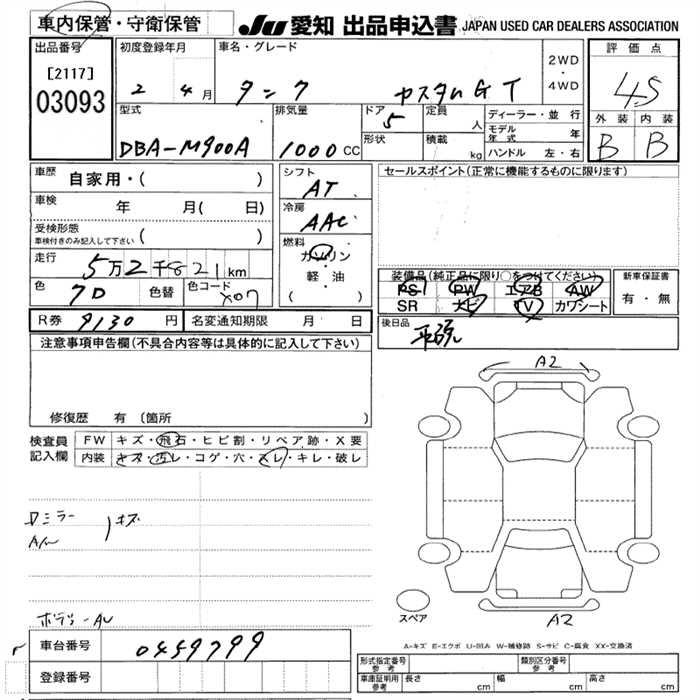 車内保管・守衛保管
JU 愛知 出品申込書 JAPAN USED CAR DEALERS ASSOCIATION
出品番号
[2117]
03093
初度登録年月
2 4月
車名・グレード
タンク カスタムGT
2WD
・
4WD
評価点
4.5
外装 内装
B B
型式
DBA-M900A
排気量
1000cc
ドア
5
形状
定員
人
積載
kg
ディーラー・並行
モデル年式 年
ハンドル 左・右
車歴
自家用・( )
車検
年 月( 日)
受検形態
車検付きのみ記入して下さい ( )
走行
5万2千821km
色
7D
色替
色コード
X07
シフト
AT
冷房
AAC
燃料
ガソリン
・
軽・油
( )
セールスポイント(正常に機能するものに限ります)
装備品(純正品に限り○をつけてください)
PS PW エアB AW
SR ナビ TV カワシート
新車保証書
有・無
R券 9130円
名変通知期限 月 日
後日品
注意事項申告欄(不具合内容等は具体的に記入して下さい)
修復歴 有 [箇所 ]
検査員
記入欄
FW キズ・飛石・ヒビ割・リペア跡・X要
内装 キズ・汚レ・コゲ・穴・スレ・キレ・破レ
A2
Dミラー
キズ
ボデー
スペア
A2
A-キズ E-エクボ U-凹み W-補修跡 S-サビ C-腐食 XX-交換済
車台番号
0459799
登録番号
形式指定番号
参考
類別区分番号
参考
車庫証明用
参考
長さ cm
幅 cm
高さ cm